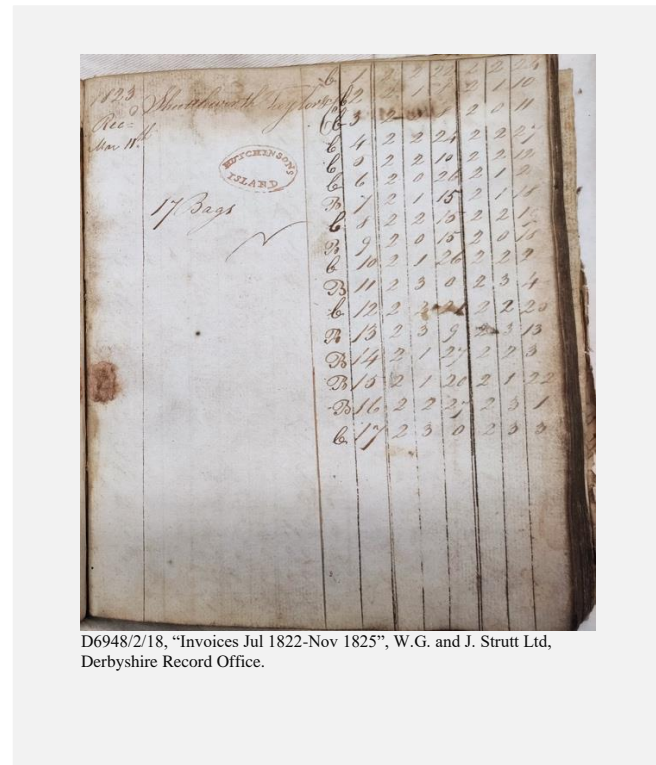 1823
Recd
Mar 11th
HUTCHINSON'S
ISLAND
17 Bags
1 2 2 2 2
2 2 1 2 1 10
3 2 2 0 11
C 4 2 2 24 2 2 27
C 2 2 10 2 2 12
C 6 2 0 26 2 1 2
B 7 2 1 15 2 1
C 8 2 2 15 2 2
B 9 2 0 15 2 0
C 10 2 1 26 2 2 2
B 11 2 3 0 2 3 4
C 12 2 2 2 20
B 13 2 3 9 2 3 13
B 14 2 1 27 2 2 3
B 15 2 1 20 2 1 22
B 16 2 2 27 2 3 1
C 17 2 3 0 2 3 3
D6948/2/18, “Invoices Jul 1822-Nov 1825”, W.G. and J. Strutt Ltd,
Derbyshire Record Office.